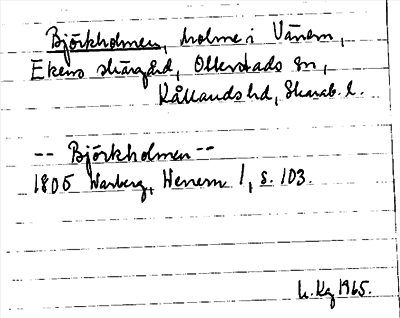 Björkholmen, holme i Vänern,
Ekens skärgård, Otterstads sn,
Kållands hd, Skarab. l.
-- Björkholmen --
1805 Warberg, Wenern 1, s. 103.
1965.